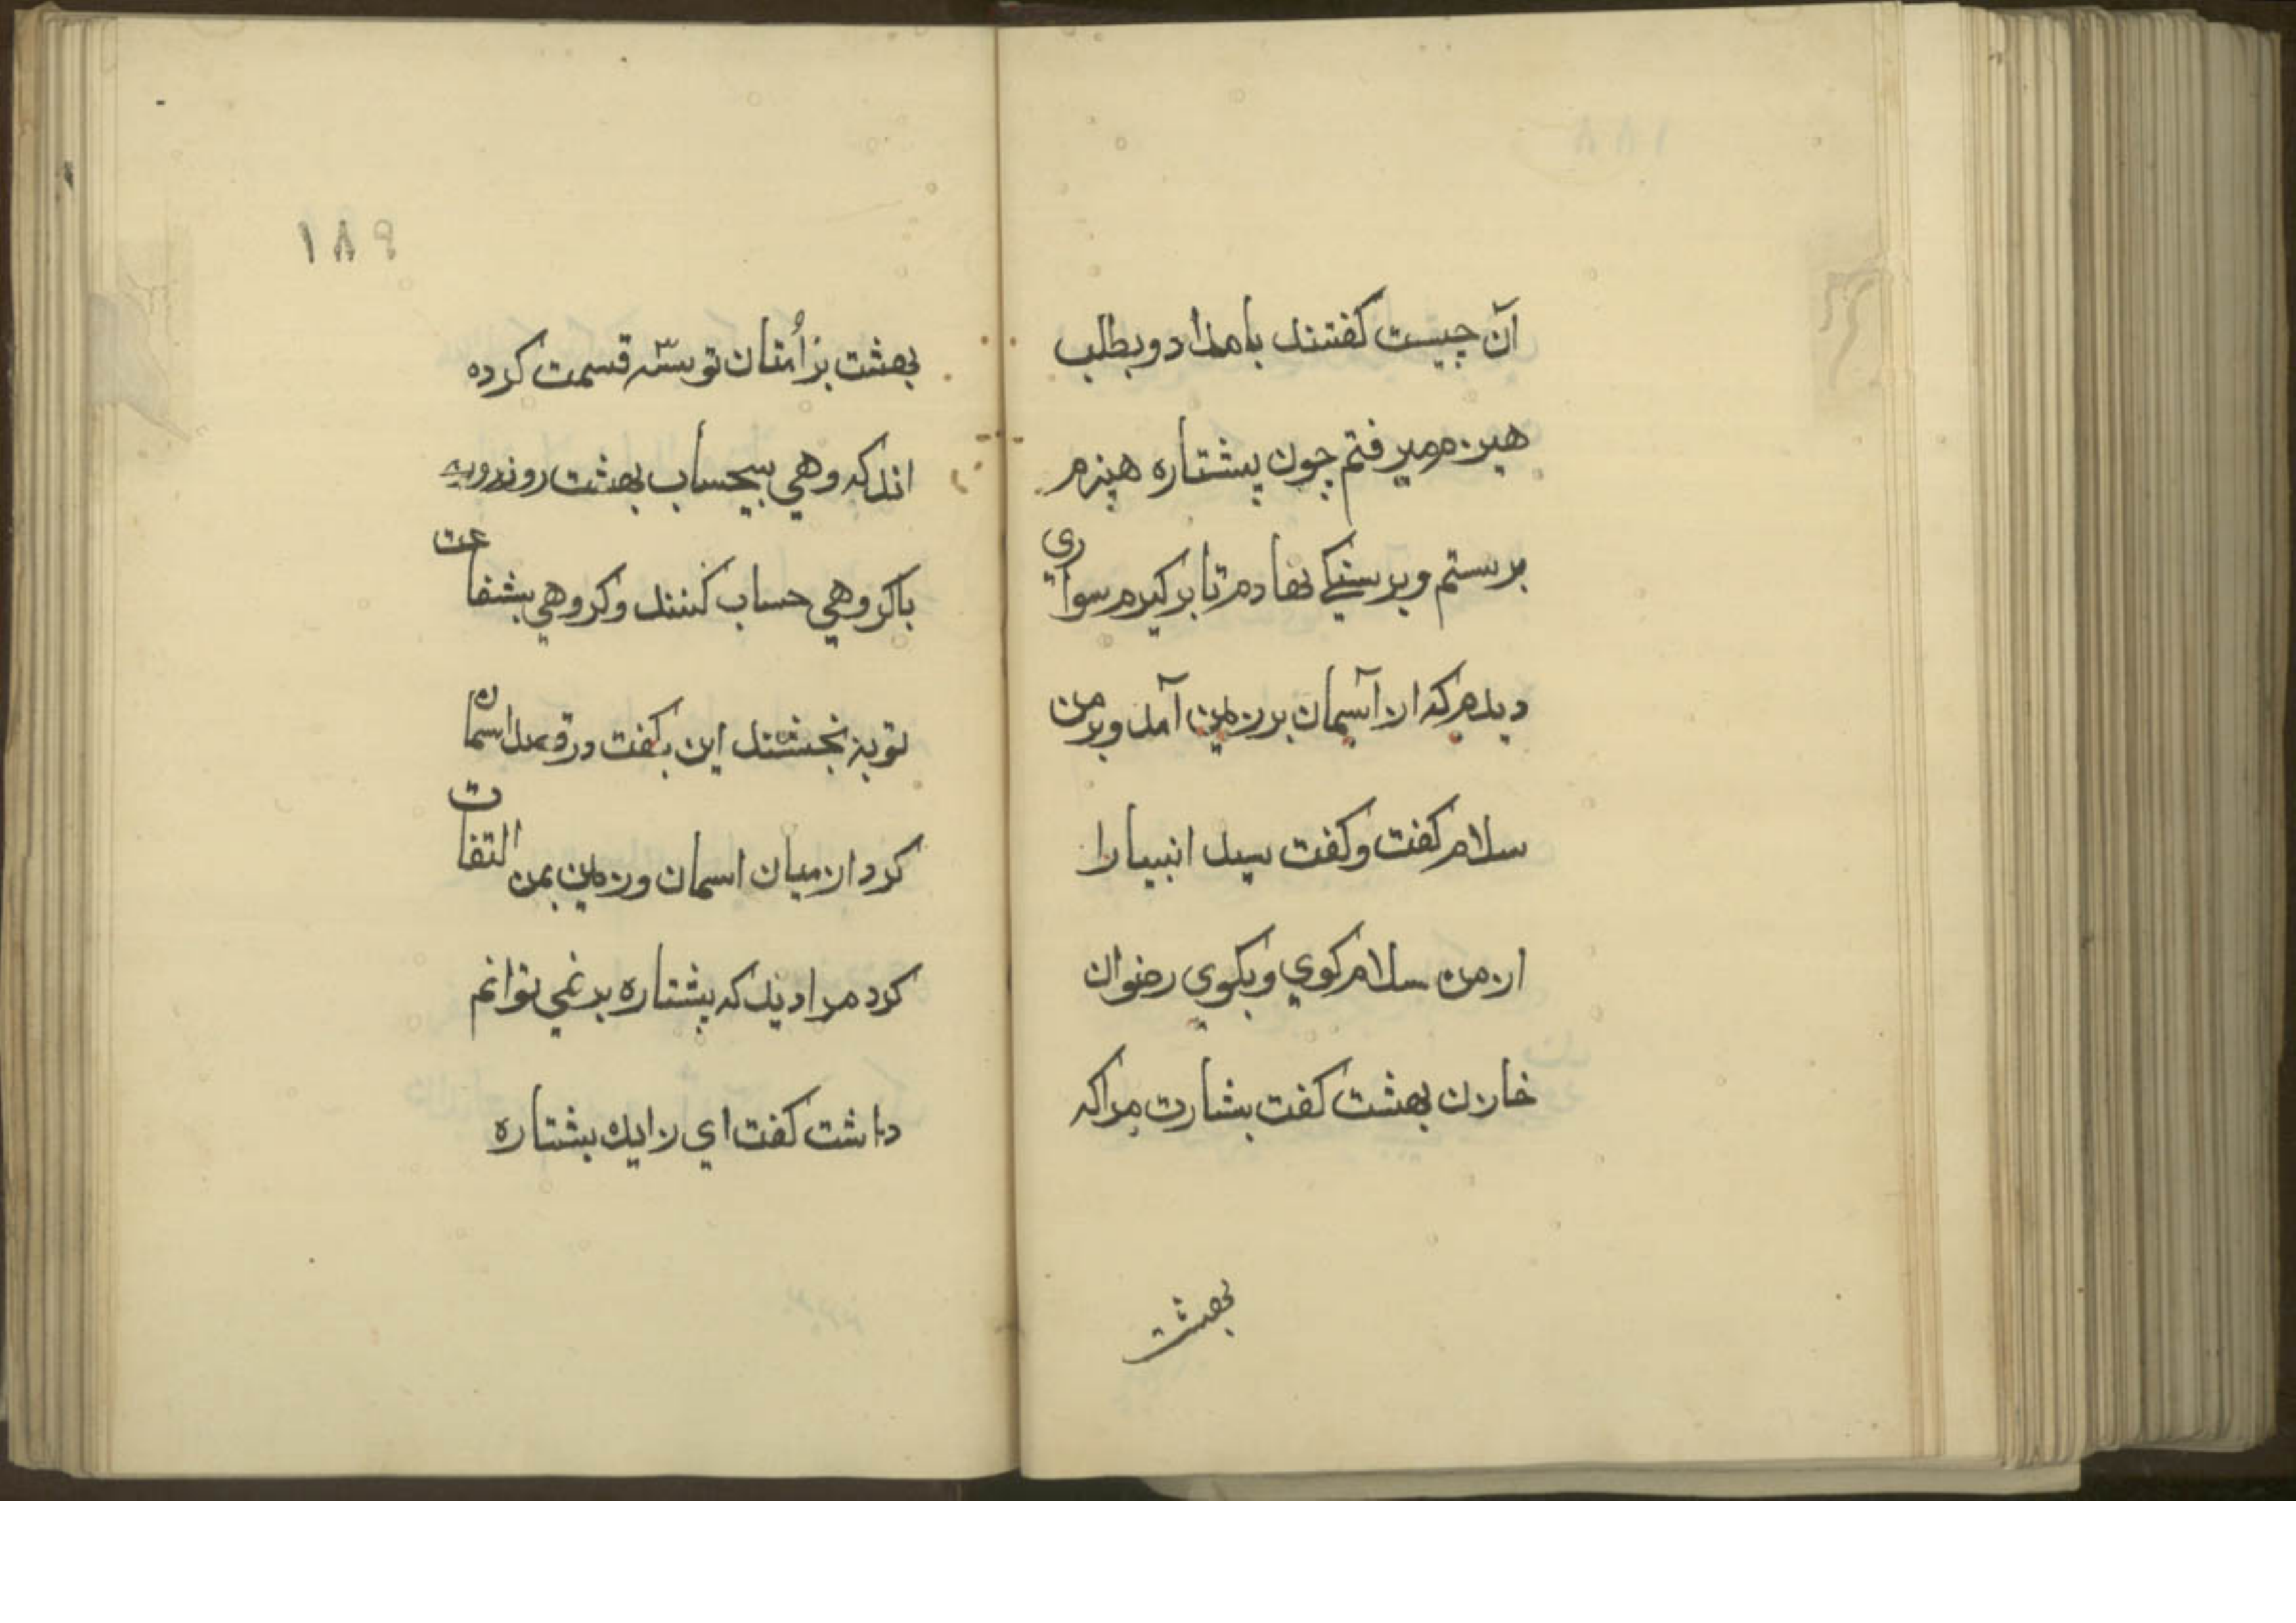 آن چیست کفتند بامداد و بطلب
هیزم میرفتم چون پشتاره هیزم
برستم و بر سنکی نهادم تا برکیرم سواری
دیدم که از آسمان بر زمین آمد و بر من
سلام کفت و کفت سید انبیا را
از من سلام کوی و بکوی رضوان
خازن بهشت کفت بشارت مر اکه
بهشت
١٨٩
بهشت بر اُمتان تو سه قسمت کرده
اند کروهی بیحساب بهشت روند و
با کروهی حساب کنند و کروهی بشفاعت
تو به بخشند این بکفت و قصد اسمان
کرد از میان اسمان و زمین بمن التفات
کرد مرا دید که پشتاره بر نمی توانم
داشت کفت ای زایده پشتاره